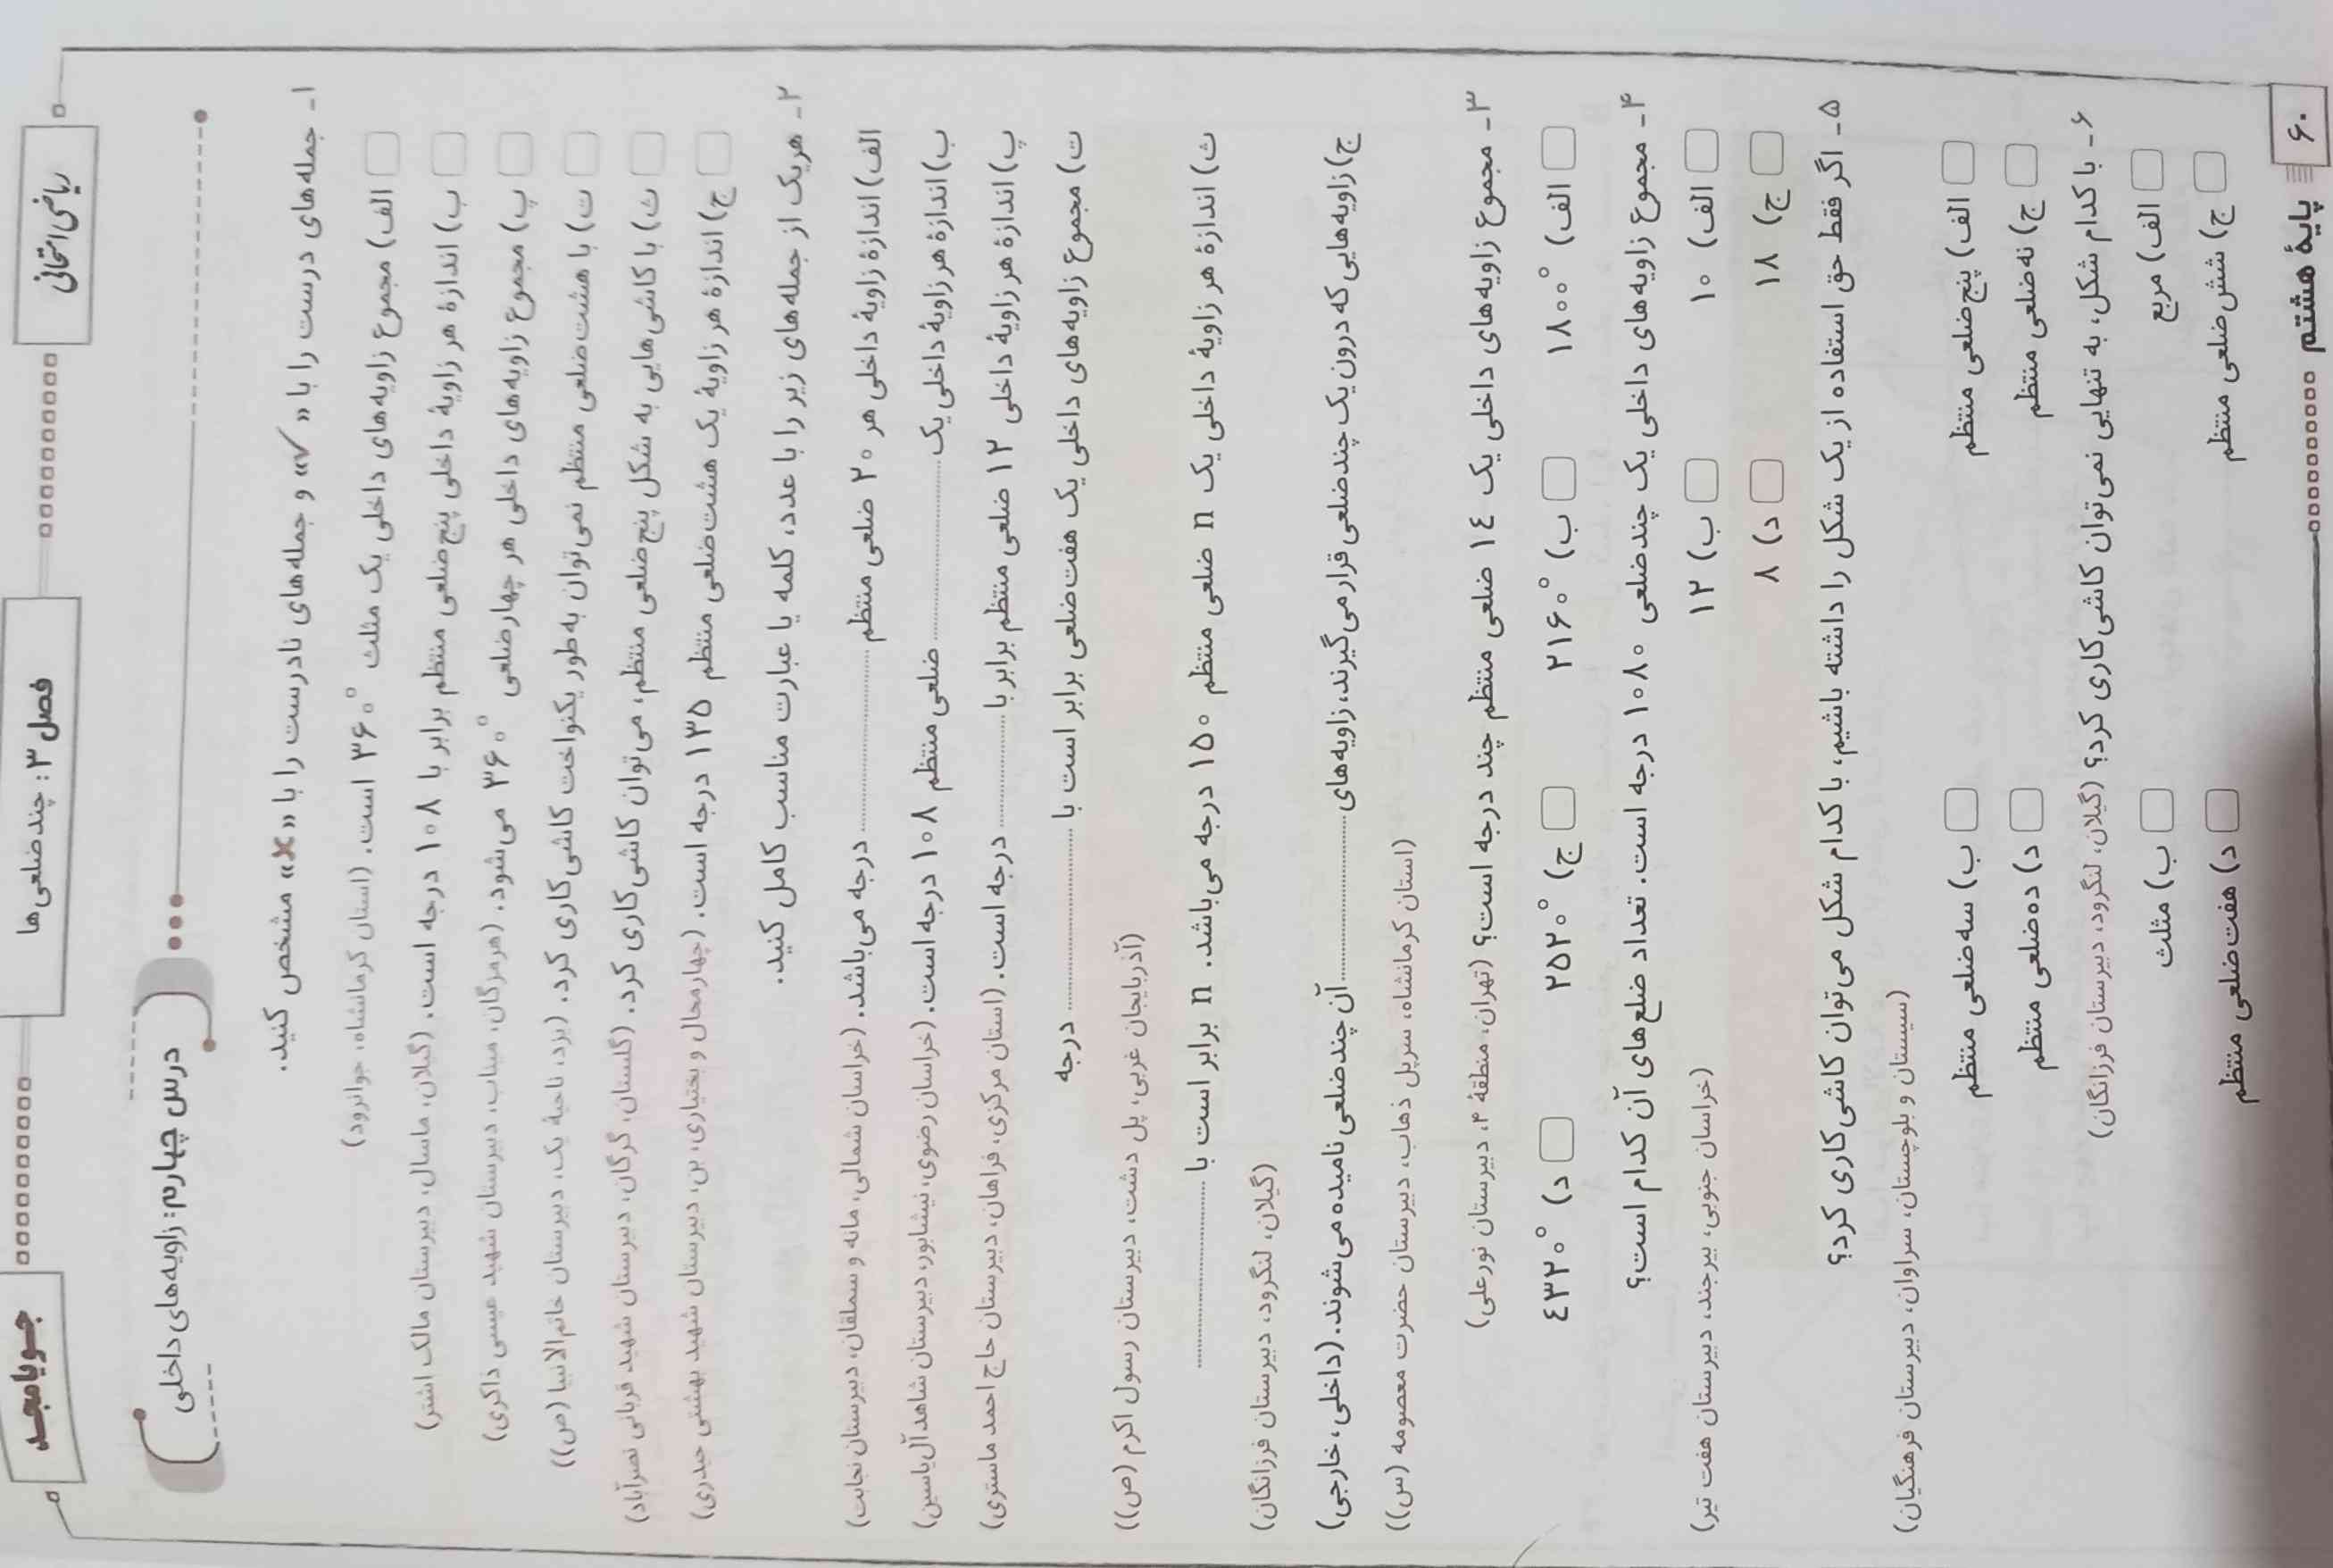 جویامجد
فصل ۳: چندضلعی‌ها
ریاضی امتحانی
درس چهارم: زاویه‌های داخلی
۱- جمله‌های درست را با «✓» و جمله‌های نادرست را با «✗» مشخص کنید.
الف) مجموع زاویه‌های داخلی یک مثلث ۳۶۰° است. (استان کرمانشاه، جوانرود)
ب) اندازهٔ هر زاویهٔ داخلی پنج‌ضلعی منتظم برابر با ۱۰۸ درجه است. (گیلان، ماسال، دبیرستان مالک اشتر)
پ) مجموع زاویه‌های داخلی هر چهارضلعی ۳۶۰° می‌شود. (هرمزگان، میناب، دبیرستان شهید عیسی ذاکری)
ت) با هشت‌ضلعی منتظم نمی‌توان به‌طور یکنواخت کاشی‌کاری کرد. (یزد، ناحیهٔ یک، دبیرستان خاتم‌الانبیا (ص))
ث) با کاشی‌هایی به شکل پنج‌ضلعی منتظم، می‌توان کاشی‌کاری کرد. (گلستان، گرگان، دبیرستان شهید قربانی نصرآباد)
ج) اندازهٔ هر زاویهٔ یک هشت‌ضلعی منتظم ۱۳۵ درجه است. (چهارمحال و بختیاری، بن، دبیرستان شهید بهشتی حیدری)
۲- هریک از جمله‌های زیر را با عدد، کلمه یا عبارت مناسب کامل کنید.
الف) اندازهٔ زاویهٔ داخلی هر ۲۰ ضلعی منتظم .................... درجه می‌باشد. (خراسان شمالی، مانه و سملقان، دبیرستان نجابت)
ب) اندازهٔ هر زاویهٔ داخلی یک .................... ضلعی منتظم ۱۰۸ درجه است. (خراسان رضوی، نیشابور، دبیرستان شاهد آل‌یاسین)
پ) اندازهٔ هر زاویهٔ داخلی ۱۲ ضلعی منتظم برابر با ............ درجه است. (استان مرکزی، فراهان، دبیرستان حاج احمد ماستری)
ت) مجموع زاویه‌های داخلی یک هفت‌ضلعی برابر است با .................... درجه
(آذربایجان غربی، پل دشت، دبیرستان رسول اکرم (ص))
ث) اندازهٔ هر زاویهٔ داخلی یک n ضلعی منتظم ۱۵۰ درجه می‌باشد. n برابر است با ....................
(گیلان، لنگرود، دبیرستان فرزانگان)
ج) زاویه‌هایی که درون یک چندضلعی قرار می‌گیرند، زاویه‌های .................... آن چندضلعی نامیده می‌شوند. (داخلی، خارجی)
(استان کرمانشاه، سرپل ذهاب، دبیرستان حضرت معصومه (س))
۳- مجموع زاویه‌های داخلی یک ۱٤ ضلعی منتظم چند درجه است؟ (تهران، منطقهٔ ۲، دبیرستان نورعلی)
الف) ۱۸۰۰° ب) ۲۱۶۰° ج) ۲۵۲۰° د) ٤۳۲۰°
۴- مجموع زاویه‌های داخلی یک چندضلعی ۱۰۸۰ درجه است. تعداد ضلع‌های آن کدام است؟
(خراسان جنوبی، بیرجند، دبیرستان هفت تیر)
الف) ۱۰ ب) ۱۲
ج) ۱۸ د) ۸
۵- اگر فقط حق استفاده از یک شکل را داشته باشیم، با کدام شکل می‌توان کاشی‌کاری کرد؟
(سیستان و بلوچستان، سراوان، دبیرستان فرهنگیان)
الف) پنج‌ضلعی منتظم ب) سه‌ضلعی منتظم
ج) نه‌ضلعی منتظم د) ده‌ضلعی منتظم
۶- با کدام شکل، به تنهایی نمی‌توان کاشی‌کاری کرد؟ (گیلان، لنگرود، دبیرستان فرزانگان)
الف) مربع ب) مثلث
ج) شش‌ضلعی منتظم د) هفت‌ضلعی منتظم
۶۰ پایهٔ هشتم